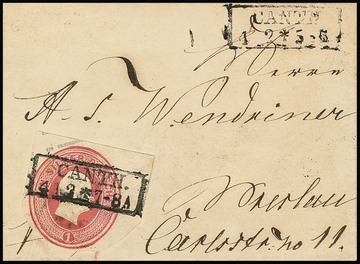 CANTH.
4 2*5-6
Herrn
A. S. Wendriner
CANTH.
4 2*7-8A
1
Breslau
Carlsstr. no 11.